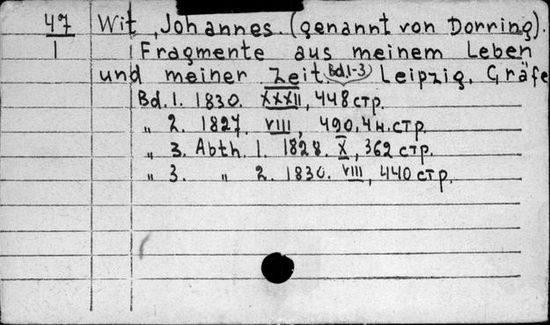 47
1
Wit, Johannes. (genannt von Dorring).
Fragmente aus meinem Leben
und meiner Zeit Bd. 1-3 Leipzig, Gräfe
Bd. 1. 1830. XXXII, 448 стр.
„ 2. 1827. VIII, 490, 4 н. стр.
„ 3. Abth. 1. 1828. X, 362 стр.
„ 3. „ 2. 1830. VIII, 440 стр.